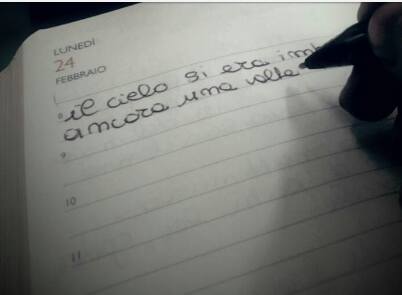 LUNEDÌ
24
FEBBRAIO
8 il cielo si era
ancora una volta
9
10
11